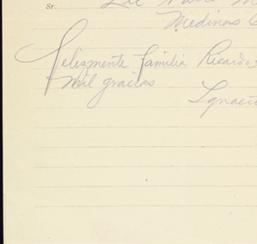 Sr.
Medinas
Felizmente familia Ricardo
mil gracias
Ignacio